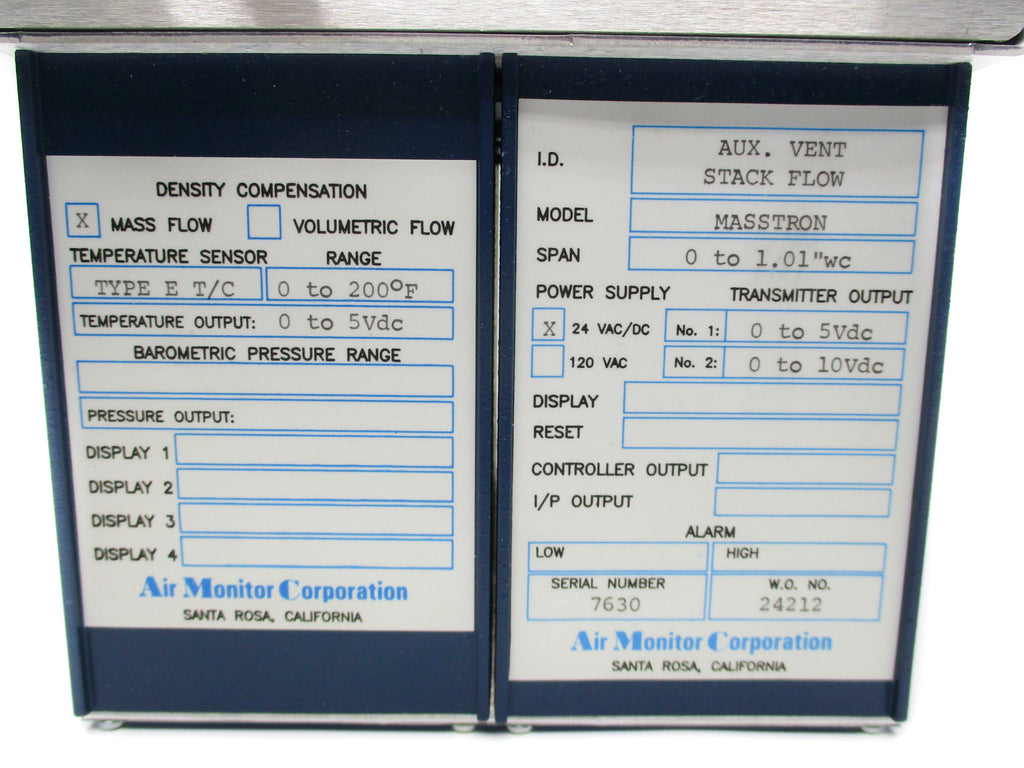 DENSITY COMPENSATION
X MASS FLOW VOLUMETRIC FLOW
TEMPERATURE SENSOR RANGE
TYPE E T/C 0 to 200°F
TEMPERATURE OUTPUT: 0 to 5Vdc
BAROMETRIC PRESSURE RANGE
PRESSURE OUTPUT:
DISPLAY 1
DISPLAY 2
DISPLAY 3
DISPLAY 4
Air Monitor Corporation
SANTA ROSA, CALIFORNIA
I.D. AUX. VENT
STACK FLOW
MODEL MASSTRON
SPAN 0 to 1.01"wc
POWER SUPPLY TRANSMITTER OUTPUT
X 24 VAC/DC No. 1: 0 to 5Vdc
120 VAC No. 2: 0 to 10Vdc
DISPLAY
RESET
CONTROLLER OUTPUT
I/P OUTPUT
ALARM
LOW HIGH
SERIAL NUMBER W.O. NO.
7630 24212
Air Monitor Corporation
SANTA ROSA, CALIFORNIA